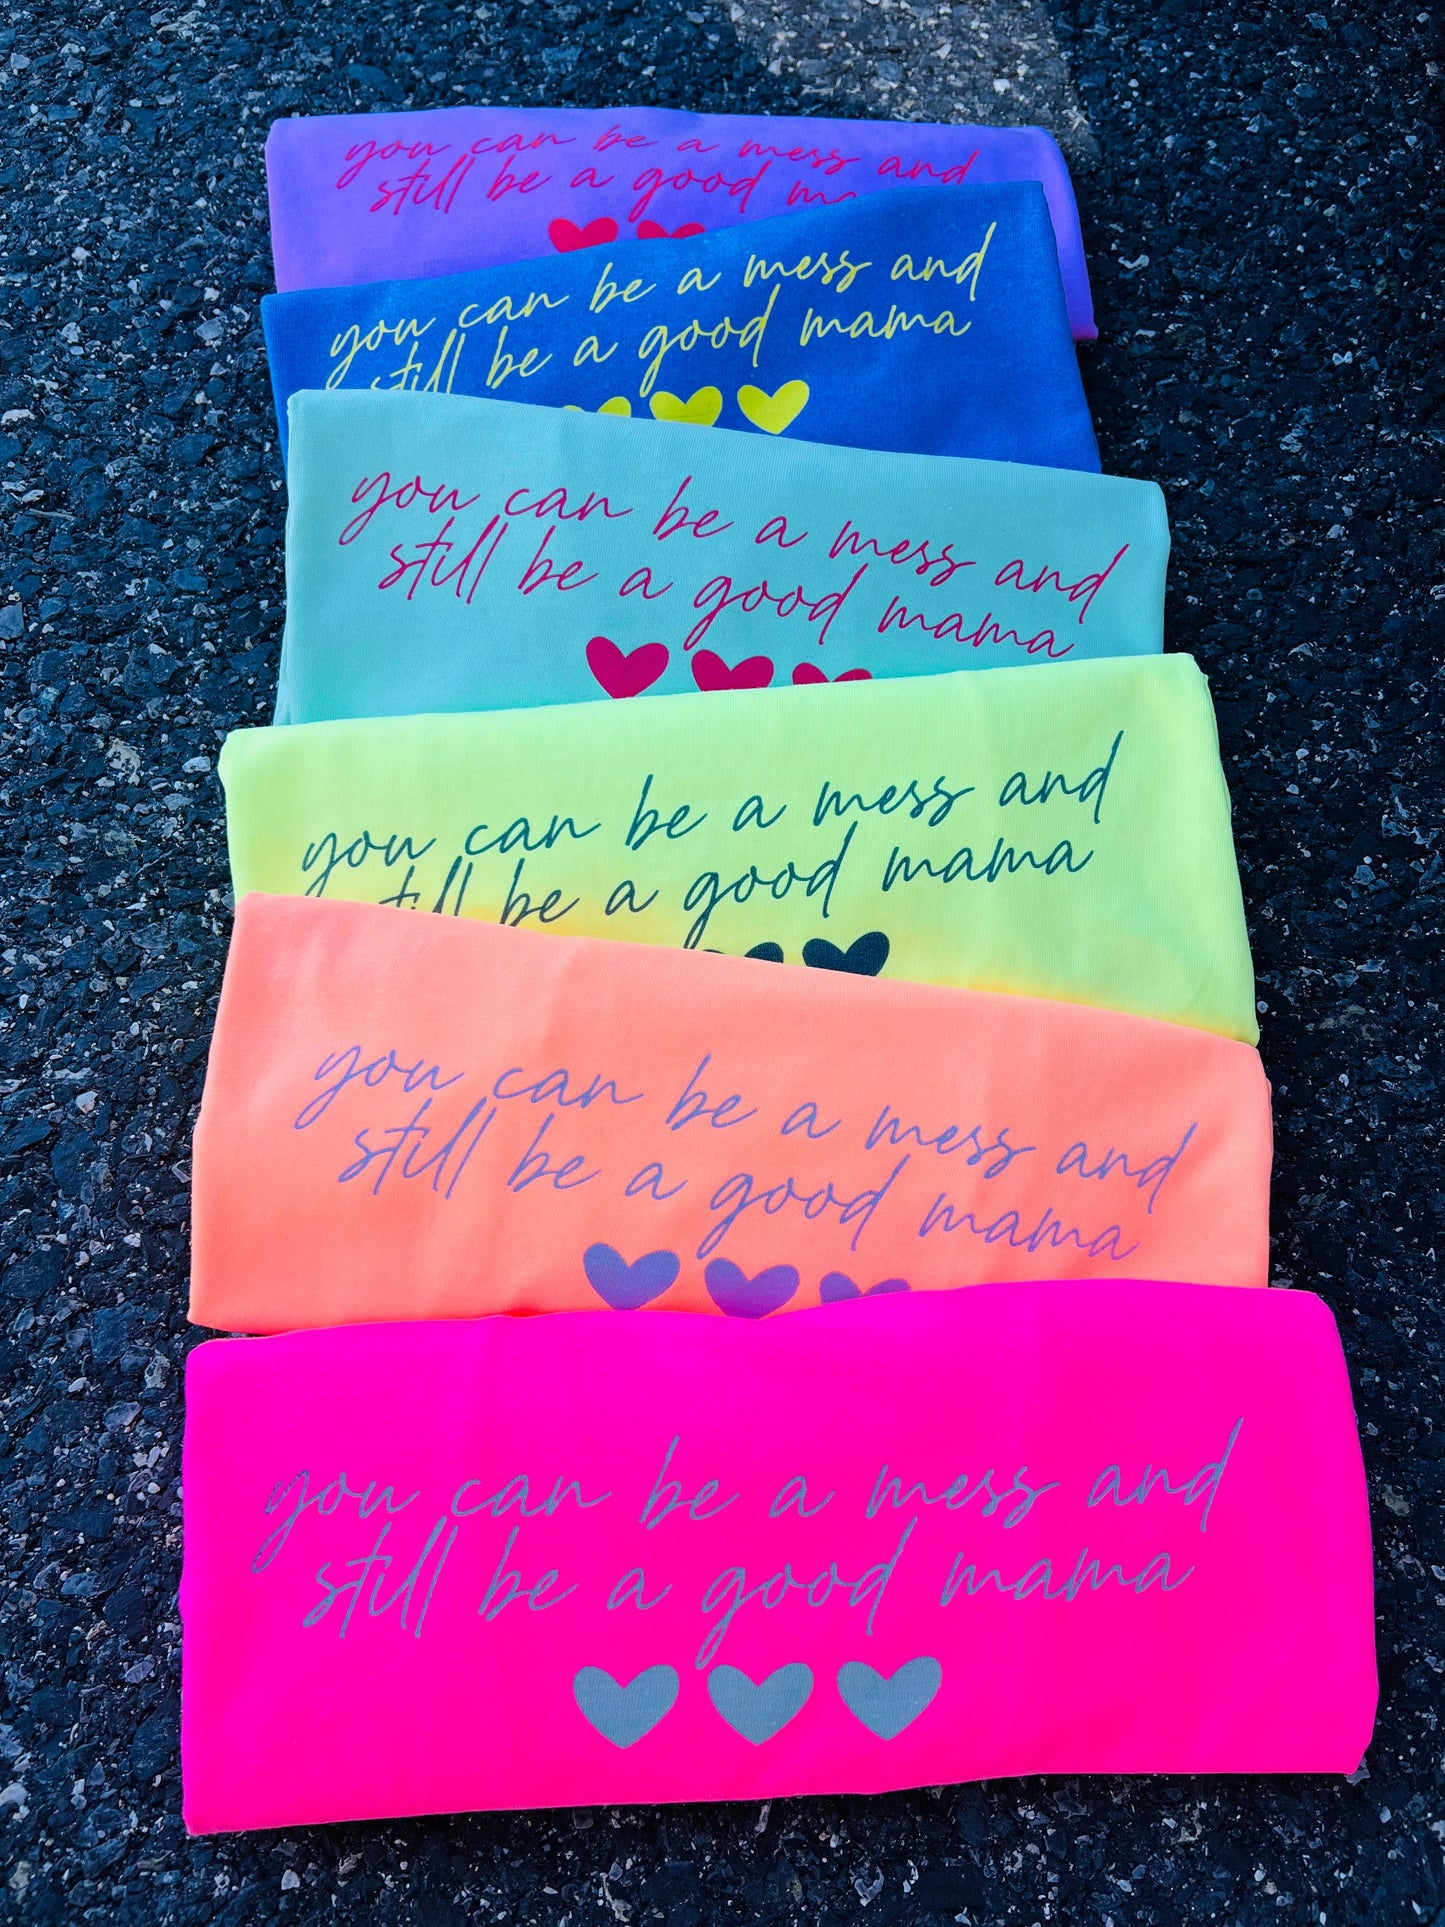 you can be a mess and
still be a good
you can be a mess and
still be a good mama
you can be a mess and
still be a good mama
you can be a mess and
still be a good mama
you can be a mess and
still be a good mama
you can be a mess and
still be a good mama